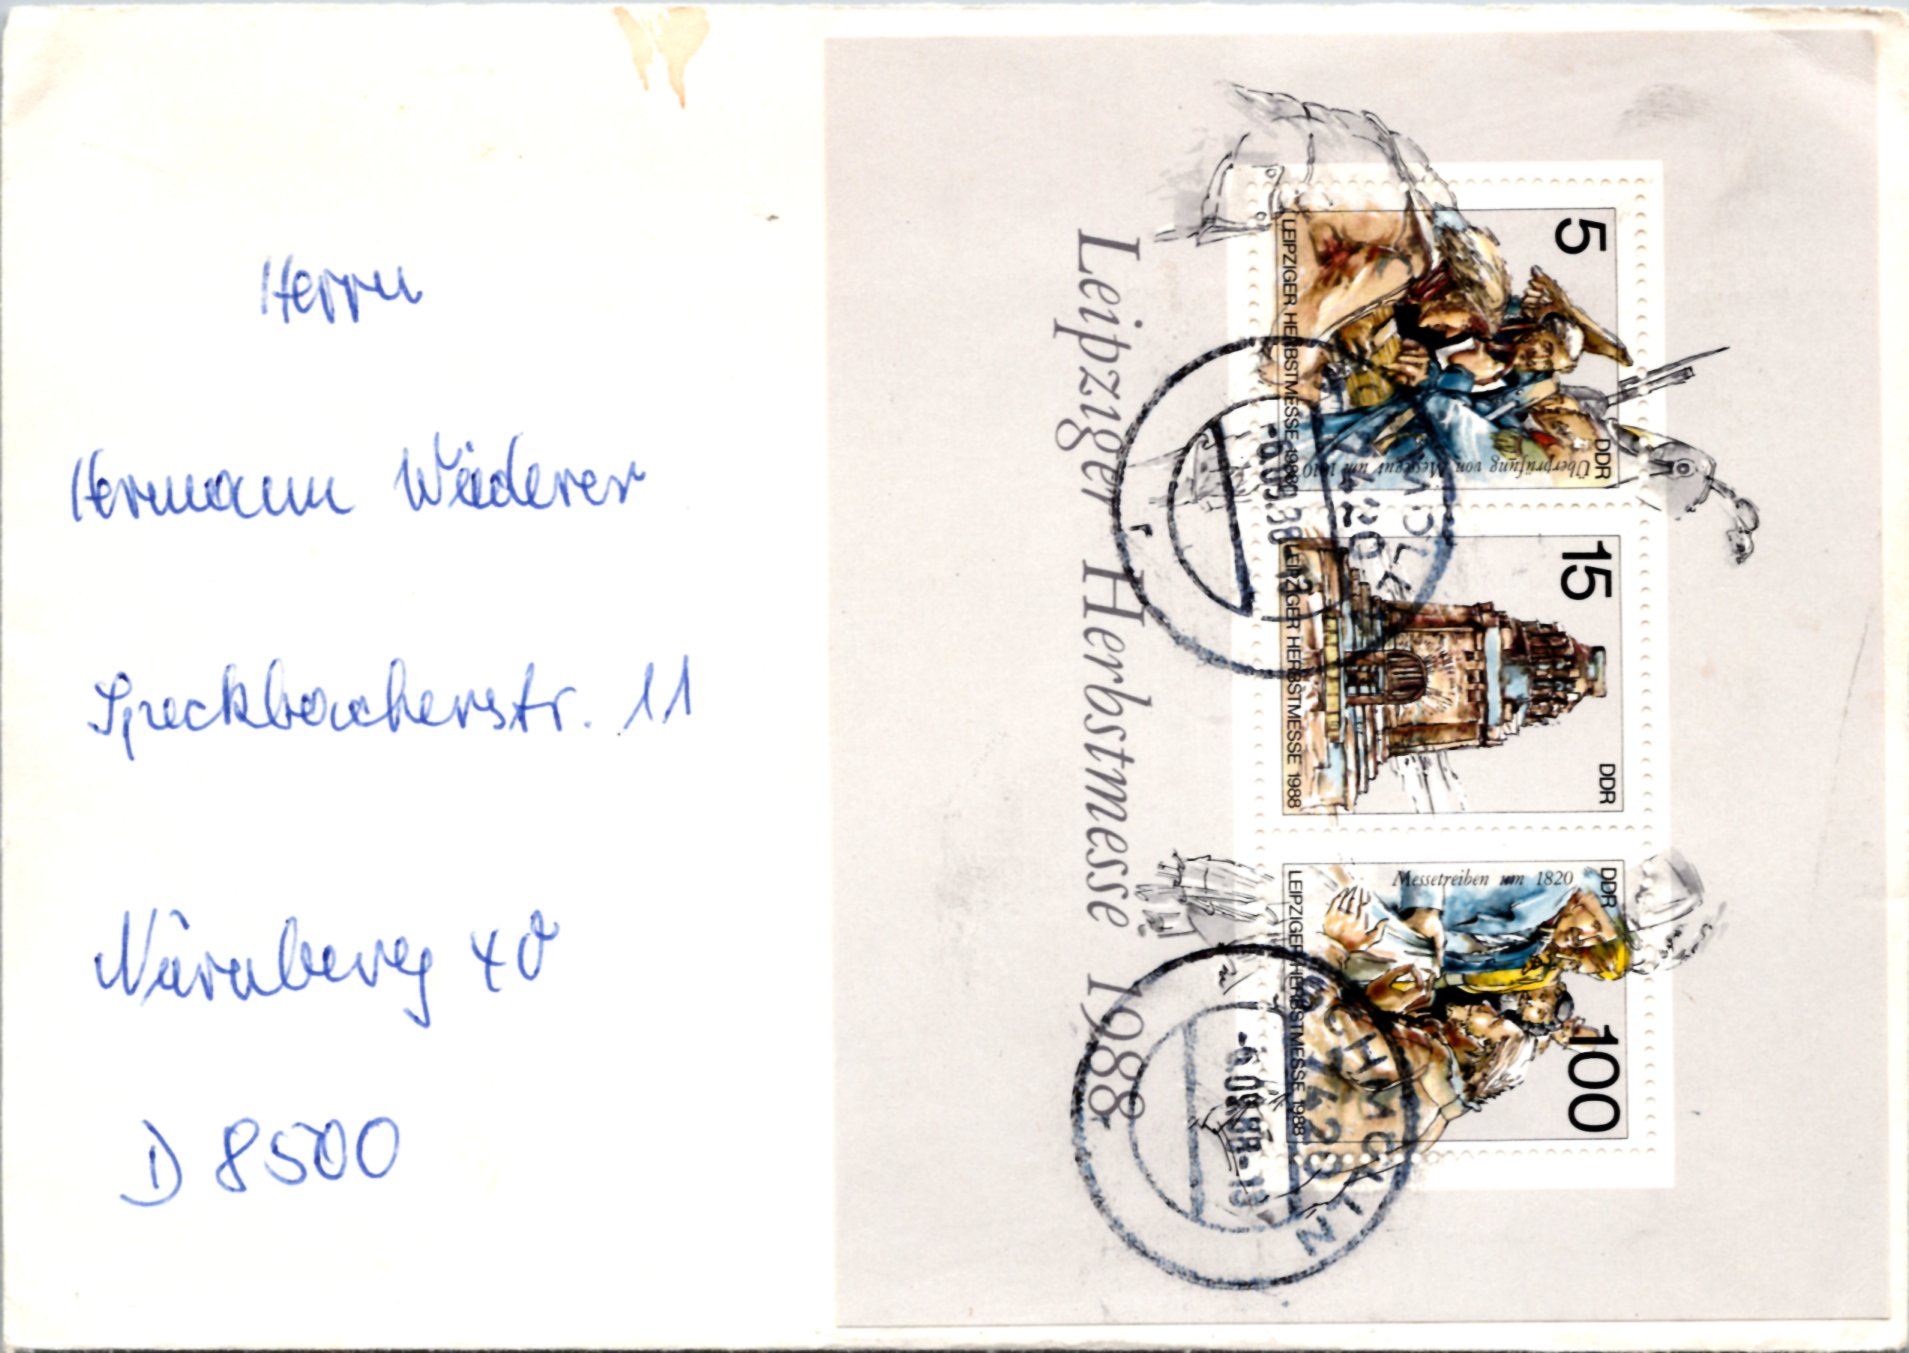 Herrn
Hermann Wäderer
Speckbacherstr. 11
Nürnberg 40
D 8500
Leipziger Herbstmesse 1988
5
DDR
Überprüfung von Messegut um 1810
LEIPZIGER HERBSTMESSE 1988
15
DDR
LEIPZIGER HERBSTMESSE 1988
DDR
Messetreiben um 1820
100
LEIPZIGER HERBSTMESSE 1988
SCHMÖLLN
7420